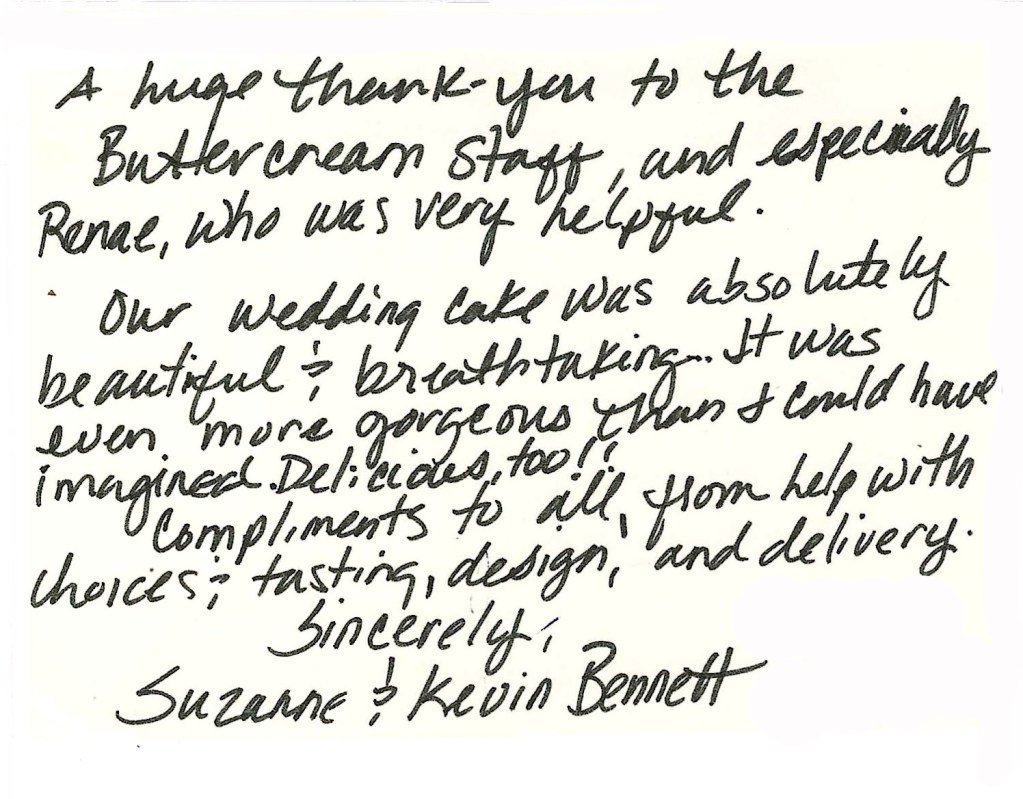 A huge thank-you to the
Buttercream Staff, and especially
Renae, who was very helpful.
Our wedding cake was absolutely
beautiful & breathtaking... It was
even more gorgeous than I could have
imagined. Delicious, too!!
Compliments to all, from help with
choices & tasting, design, and delivery.
Sincerely,
Suzanne & Kevin Bennett